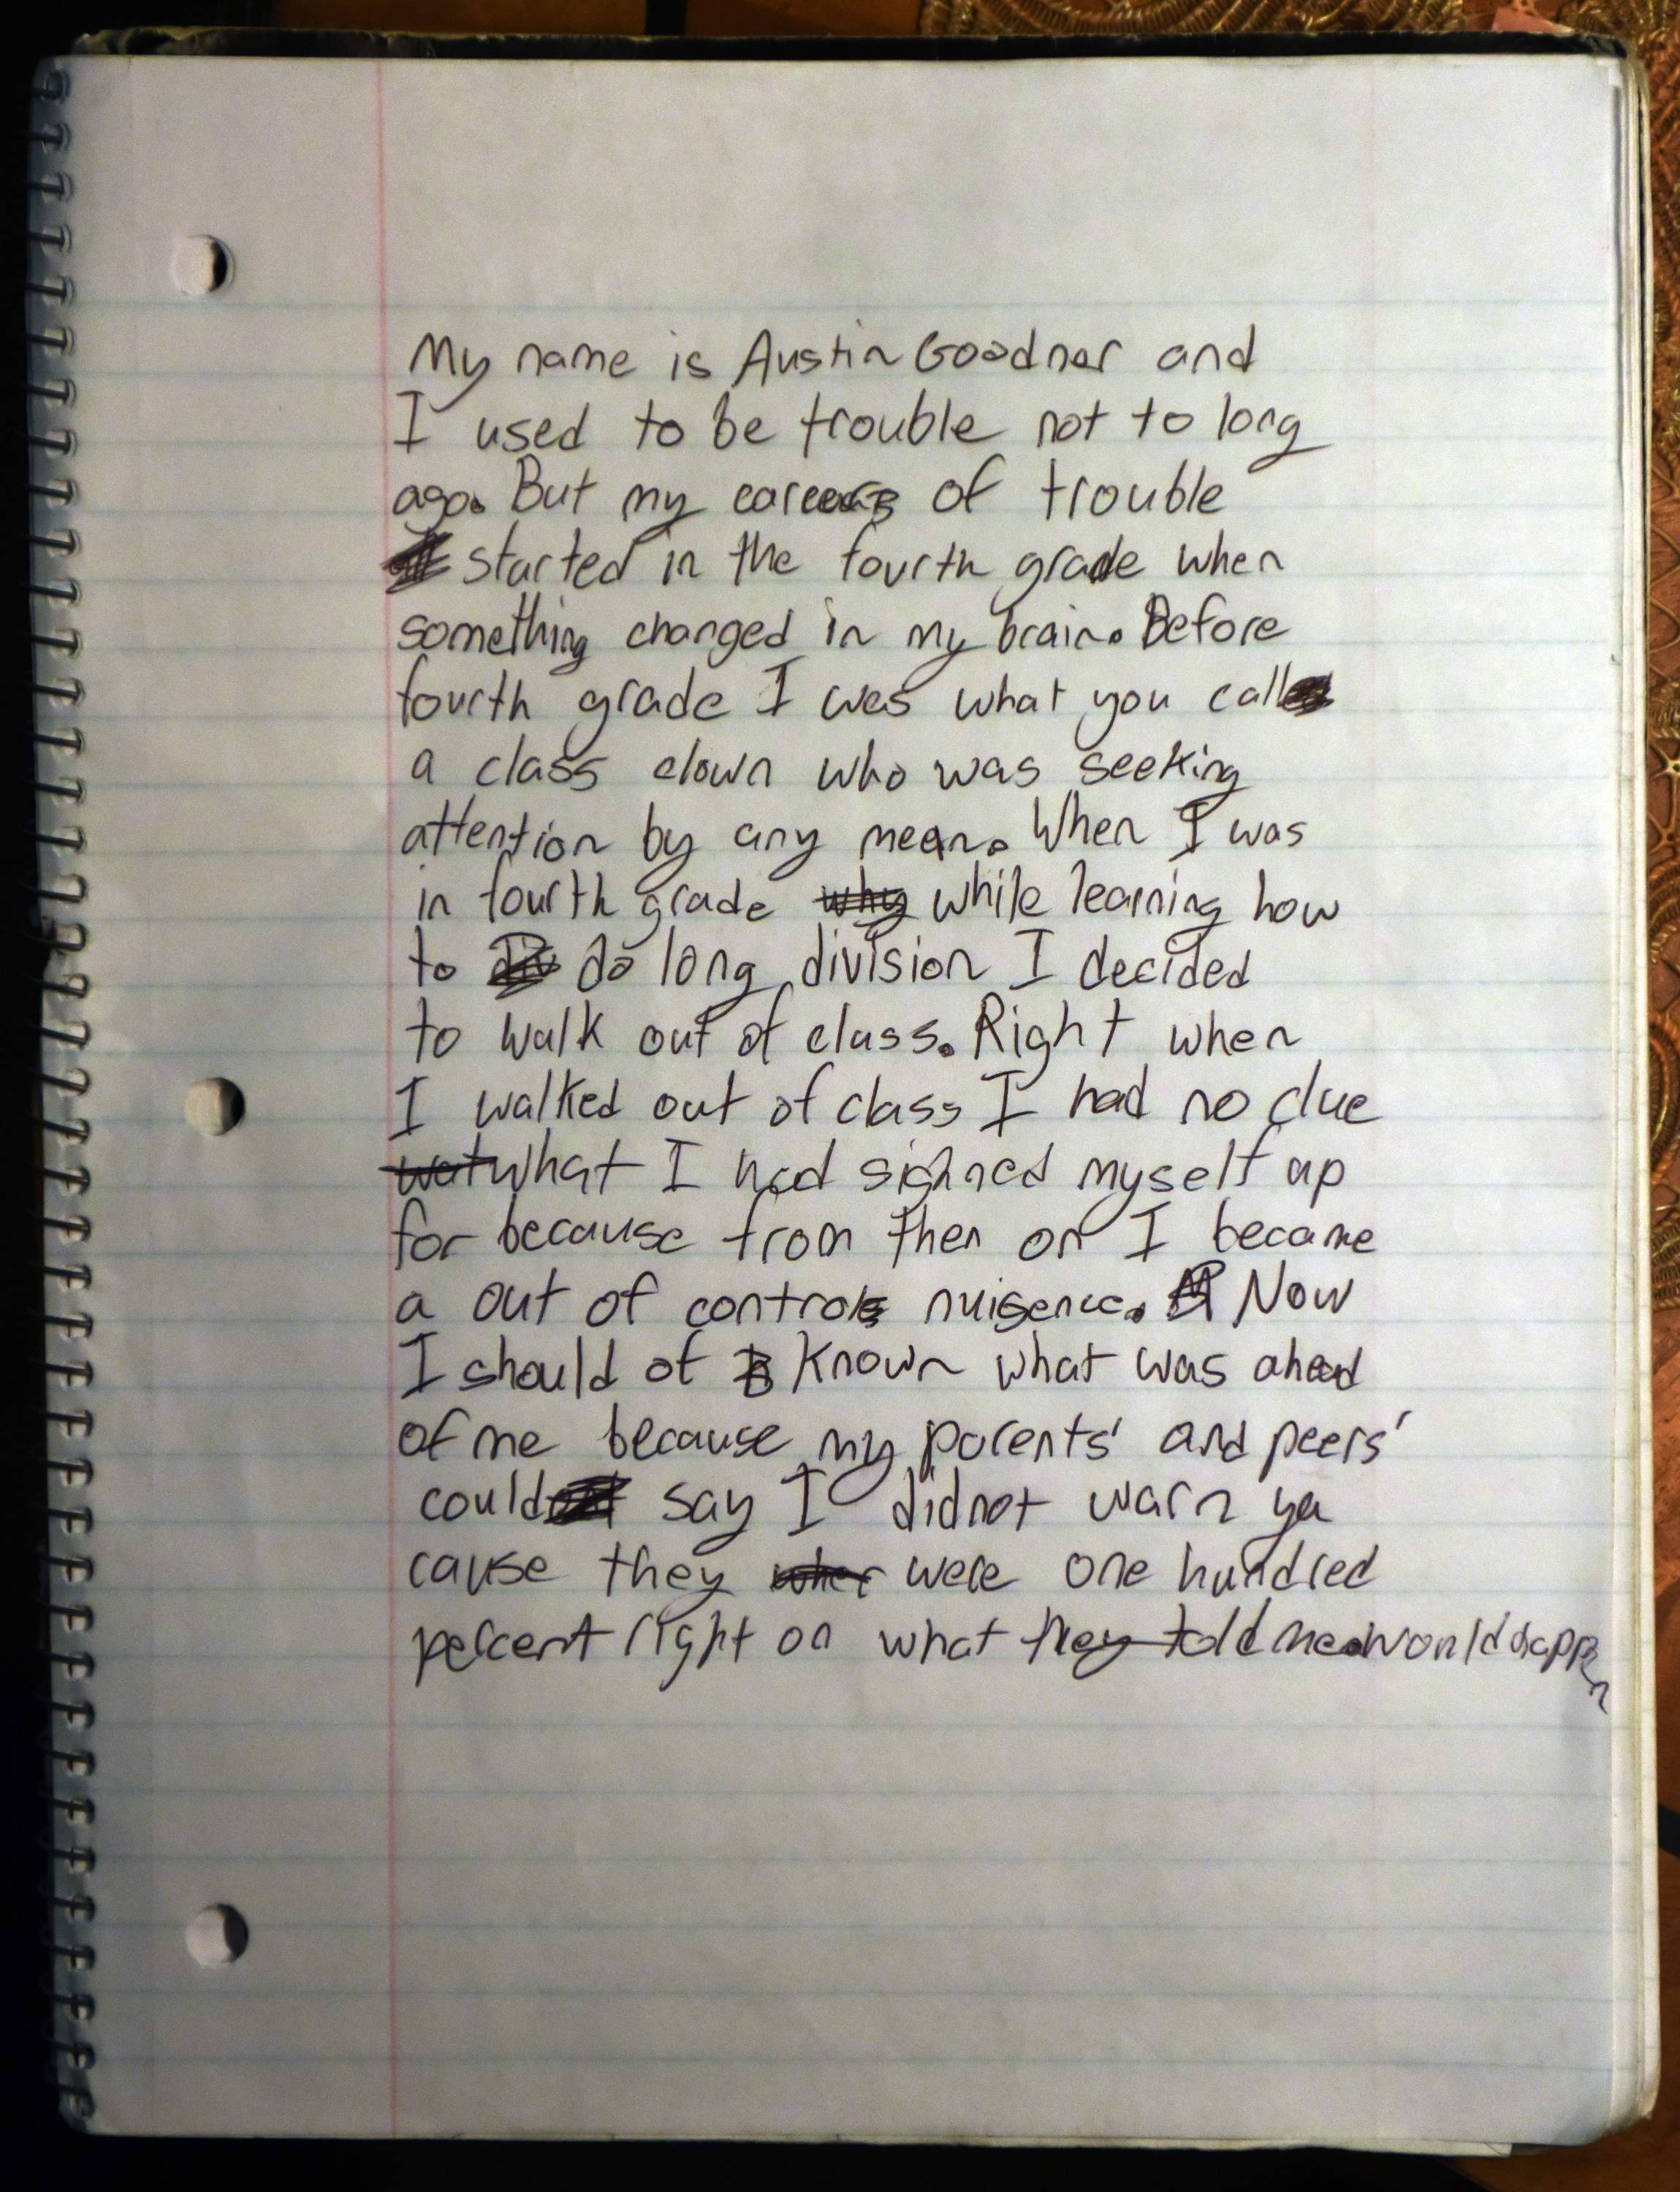 My name is Austin Goodner and
I used to be trouble not to long
ago. But my career of trouble
started in the fourth grade when
something changed in my brain. Before
fourth grade I was what you call
a class clown who was seeking
attention by any mean. When I was
in fourth grade why while learning how
to div do long division I decided
to walk out of class. Right when
I walked out of class I had no clue
wat what I had signed myself up
for because from then on I became
a out of control nuisence. Now
I should of known what was ahead
of me because my parents' and peers'
could say I didnot warn ya
cause they wher were one hundred
percent right on what they told me would happen